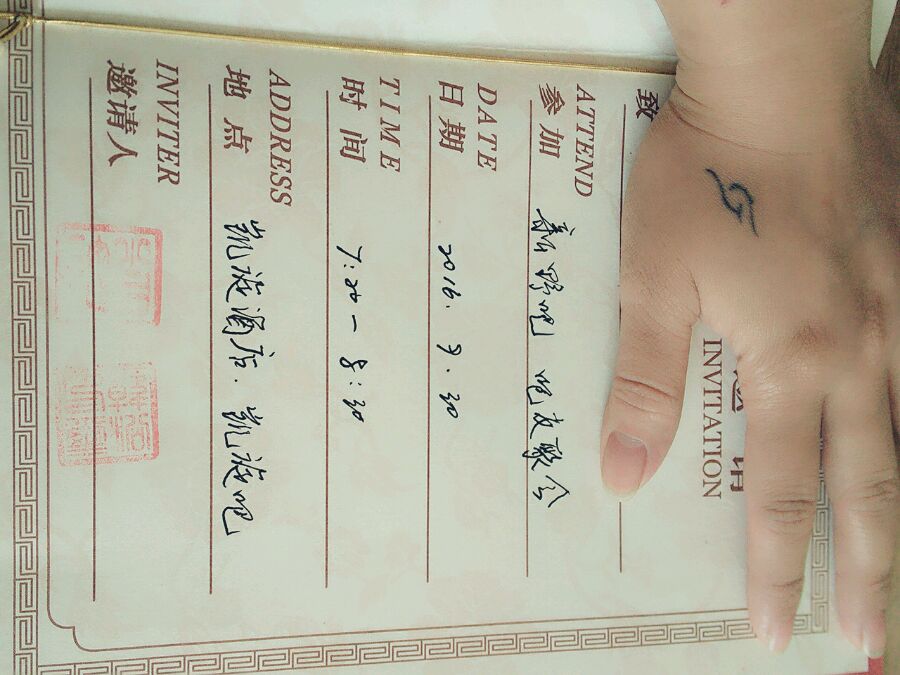 INVITATION
致
ATTEND
参加 新野吧 吧友聚会
DATE
日期 2016. 9. 30
TIME
时间 7:20 — 8:30
ADDRESS
地点 凯旋酒店. 凯旋吧
INVITER
邀请人